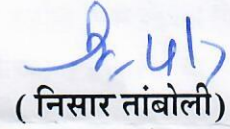 ( निसार तांबोली)